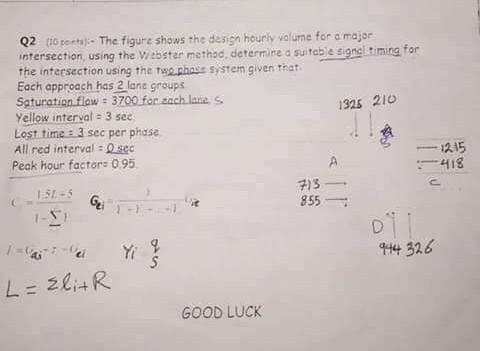 Q2 (10 points):- The figure shows the design hourly volume for a major
intersection, using the Webster method, determine a suitable signal timing for
the intersection using the two phase system given that:
Each approach has 2 lane groups
Saturation flow = 3700 for each lane S
Yellow interval = 3 sec
Lost time = 3 sec per phase
All red interval = 0 sec
Peak hour factor = 0.95
1325 210
B
A
1215
418
C
713
855
D
944 326
C = 1.5L + 5 / 1 - Σ Y
Yi = q / S
L = Σli + R
GOOD LUCK